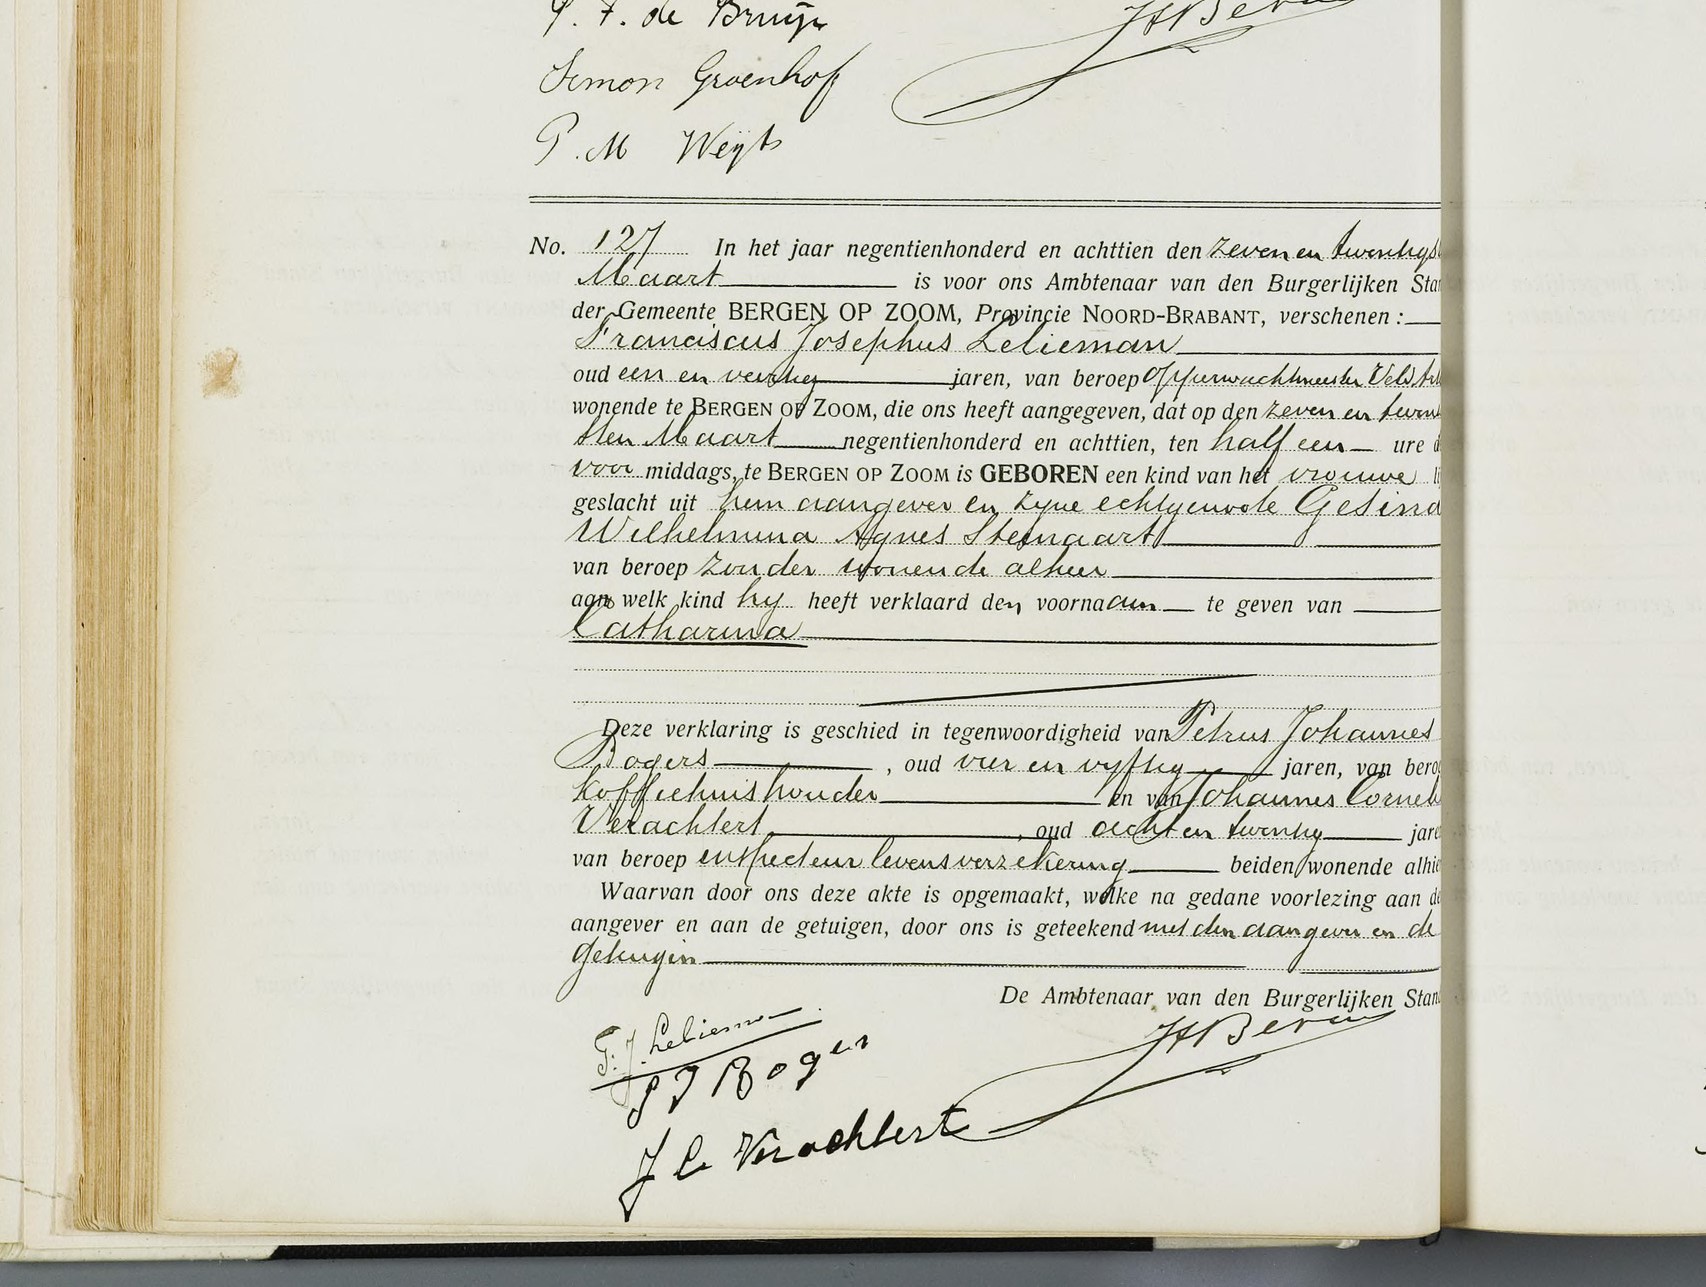 P. F. de Bruijn
Simon Groenhof
P. M Weijts
No. 127 In het jaar negentienhonderd en achttien den zeven en twintigst
Maart is voor ons Ambtenaar van den Burgerlijken Stan
der Gemeente BERGEN OP ZOOM, Provincie NOORD-BRABANT, verschenen:
Franciscus Josephus Lelieman
oud een en veertig jaren, van beroep Opperwachtmeester Veld Art
wonende te BERGEN OP ZOOM, die ons heeft aangegeven, dat op den zeven en twin
sten Maart negentienhonderd en achttien, ten half een ure d
voor middags, te BERGEN OP ZOOM is GEBOREN een kind van het vrouwe li
geslacht uit hem aangever en zijne echtgenoote Gesina
Wilhelmina Agnes Steinaart
van beroep zonder wonende alhier
aan welk kind hij heeft verklaard den voornaam te geven van
Catharina
Deze verklaring is geschied in tegenwoordigheid van Petrus Johannes
Bogers, oud vier en vijftig jaren, van beroe
koffiehuishouder en van Johannes Corneli
Verachtert, oud acht en twintig jare
van beroep inspecteur levensverzekering beiden wonende alhie
Waarvan door ons deze akte is opgemaakt, welke na gedane voorlezing aan de
aangever en aan de getuigen, door ons is geteekend met den aangever en de
getuigen
De Ambtenaar van den Burgerlijken Stan
F. J. Lelieman
P J Bogers
J C Verachtert